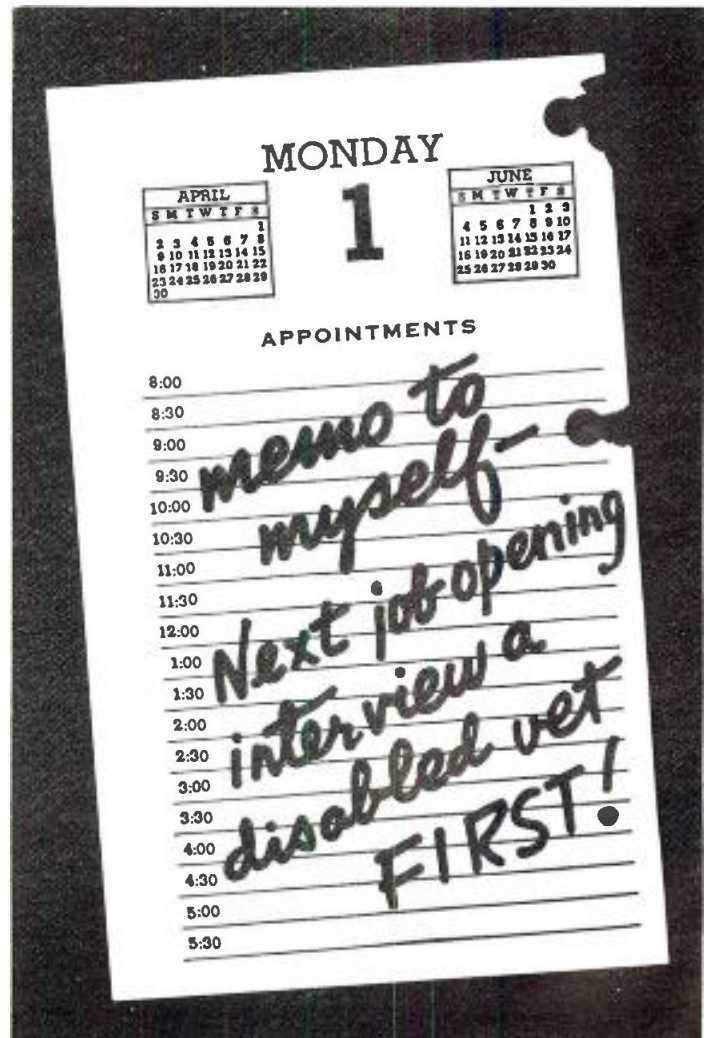 MONDAY
1
APRIL
S M T W T F S
1
2 3 4 5 6 7 8
9 10 11 12 13 14 15
16 17 18 19 20 21 22
23 24 25 26 27 28 29
30
JUNE
S M T W T F S
1 2 3
4 5 6 7 8 9 10
11 12 13 14 15 16 17
18 19 20 21 22 23 24
25 26 27 28 29 30
APPOINTMENTS
8:00
8:30
9:00
9:30
10:00
10:30
11:00
11:30
12:00
1:00
1:30
2:00
2:30
3:00
3:30
4:00
4:30
5:00
5:30
memo to
myself-
Next job opening
interview a
disabled vet
FIRST!